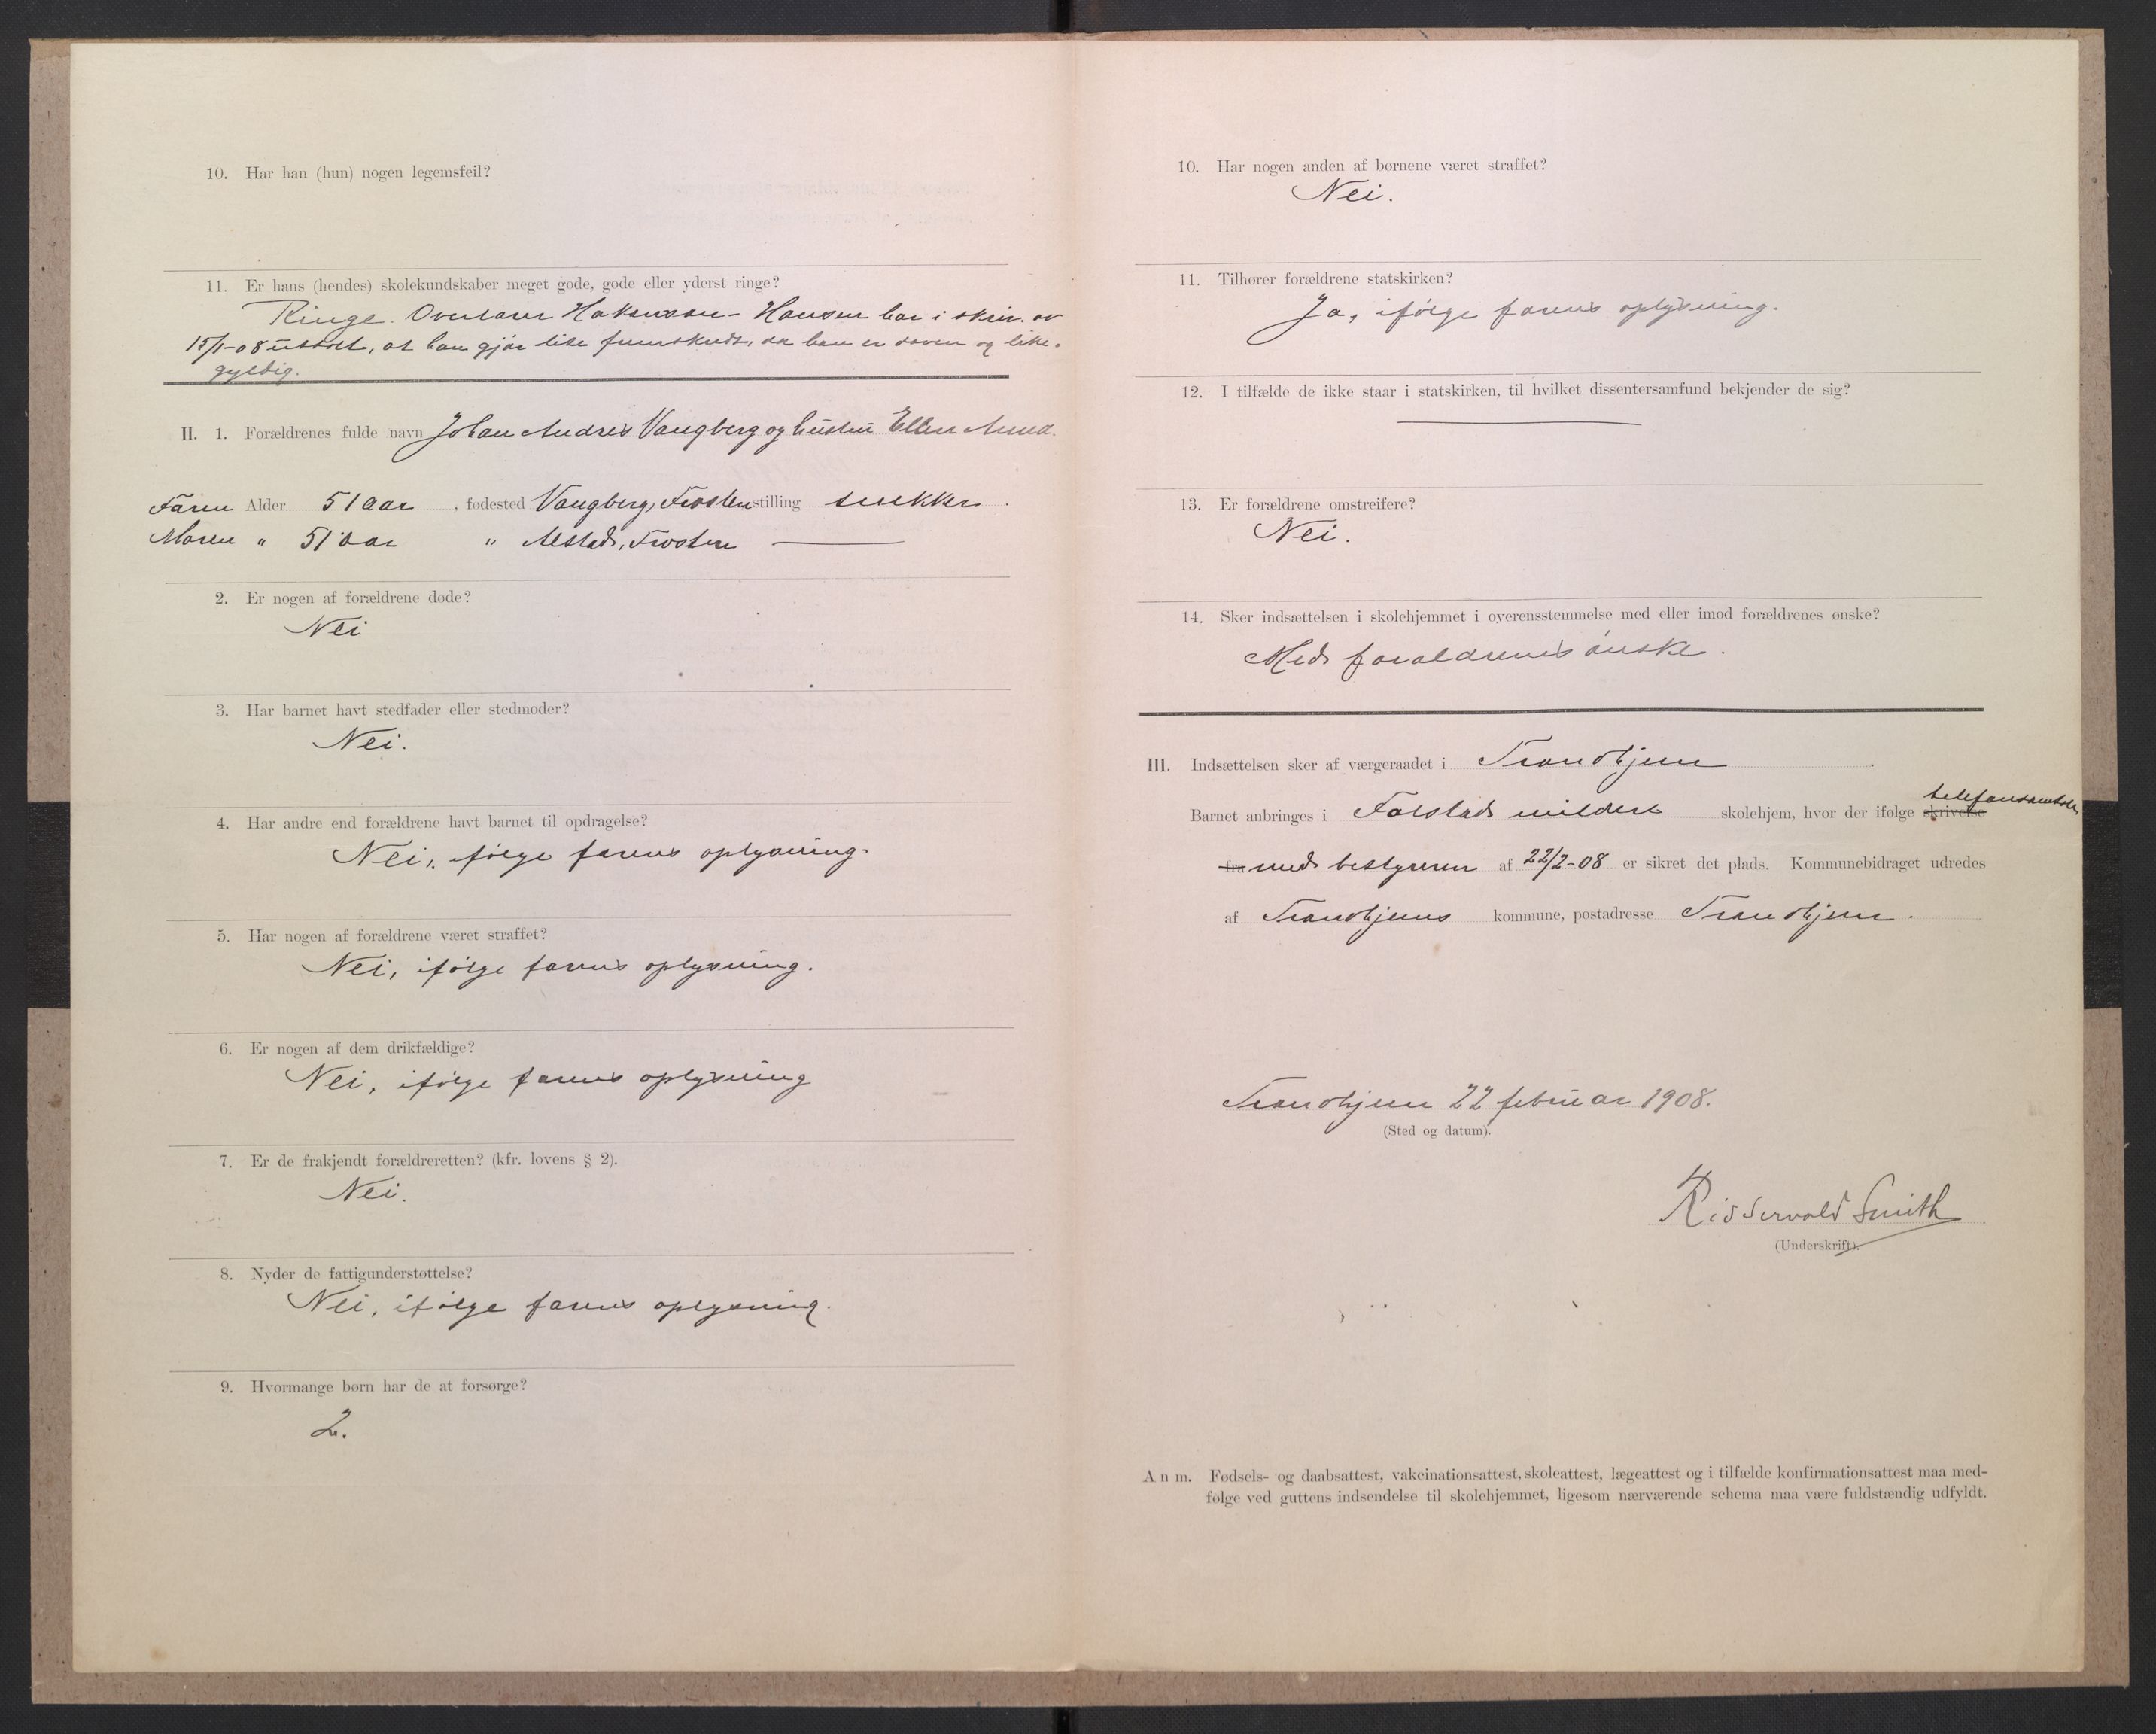 10. Har han (hun) nogen legemsfeil?
11. Er hans (hendes) skolekundskaber meget gode, gode eller yderst ringe?
Ringe. Overlærer Hakonson-Hansen har i skriv. av
15/1-08 uttalt, at han gjør lite fremskridt, da han er doven og like-
gyldig.
II. 1. Forældrenes fulde navn Johan Andreas Vangberg og hustru Ellen Anna.
Faren Alder 51 aar, fødested Vangberg, Frosten stilling snekker.
Moren " 51 aar " Alstad, Frosten —
2. Er nogen af forældrene døde?
Nei
3. Har barnet havt stedfader eller stedmoder?
Nei.
4. Har andre end forældrene havt barnet til opdragelse?
Nei, ifølge farens oplysning.
5. Har nogen af forældrene været straffet?
Nei, ifølge farens oplysning.
6. Er nogen af dem drikfældige?
Nei, ifølge farens oplysning
7. Er de frakjendt forældreretten? (kfr. lovens § 2).
Nei.
8. Nyder de fattigunderstøttelse?
Nei, ifølge farens oplysning.
9. Hvormange børn har de at forsørge?
2.
10. Har nogen anden af børnene været straffet?
Nei.
11. Tilhører forældrene statskirken?
Ja, ifølge farens oplysning.
12. I tilfælde de ikke staar i statskirken, til hvilket dissentersamfund bekjender de sig?
—
13. Er forældrene omstreifere?
Nei.
14. Sker indsættelsen i skolehjemmet i overensstemmelse med eller imod forældrenes ønske?
Med forældrenes ønske.
III. Indsættelsen sker af værgeraadet i Trondhjem
telefonsamtale
Barnet anbringes i Falstad mildere skolehjem, hvor der ifølge skrivelse
fra med bestyreren af 22/2-08 er sikret det plads. Kommunebidraget udredes
af Trondhjems kommune, postadresse Trondhjem.
Trondhjem 22 februar 1908.
(Sted og datum).
Ridservold Smith
(Underskrift).
Anm. Fødsels- og daabsattest, vakcinationsattest, skoleattest, lægeattest og i tilfælde konfirmationsattest maa med-
følge ved guttens indsendelse til skolehjemmet, ligesom nærværende schema maa være fuldstændig udfyldt.